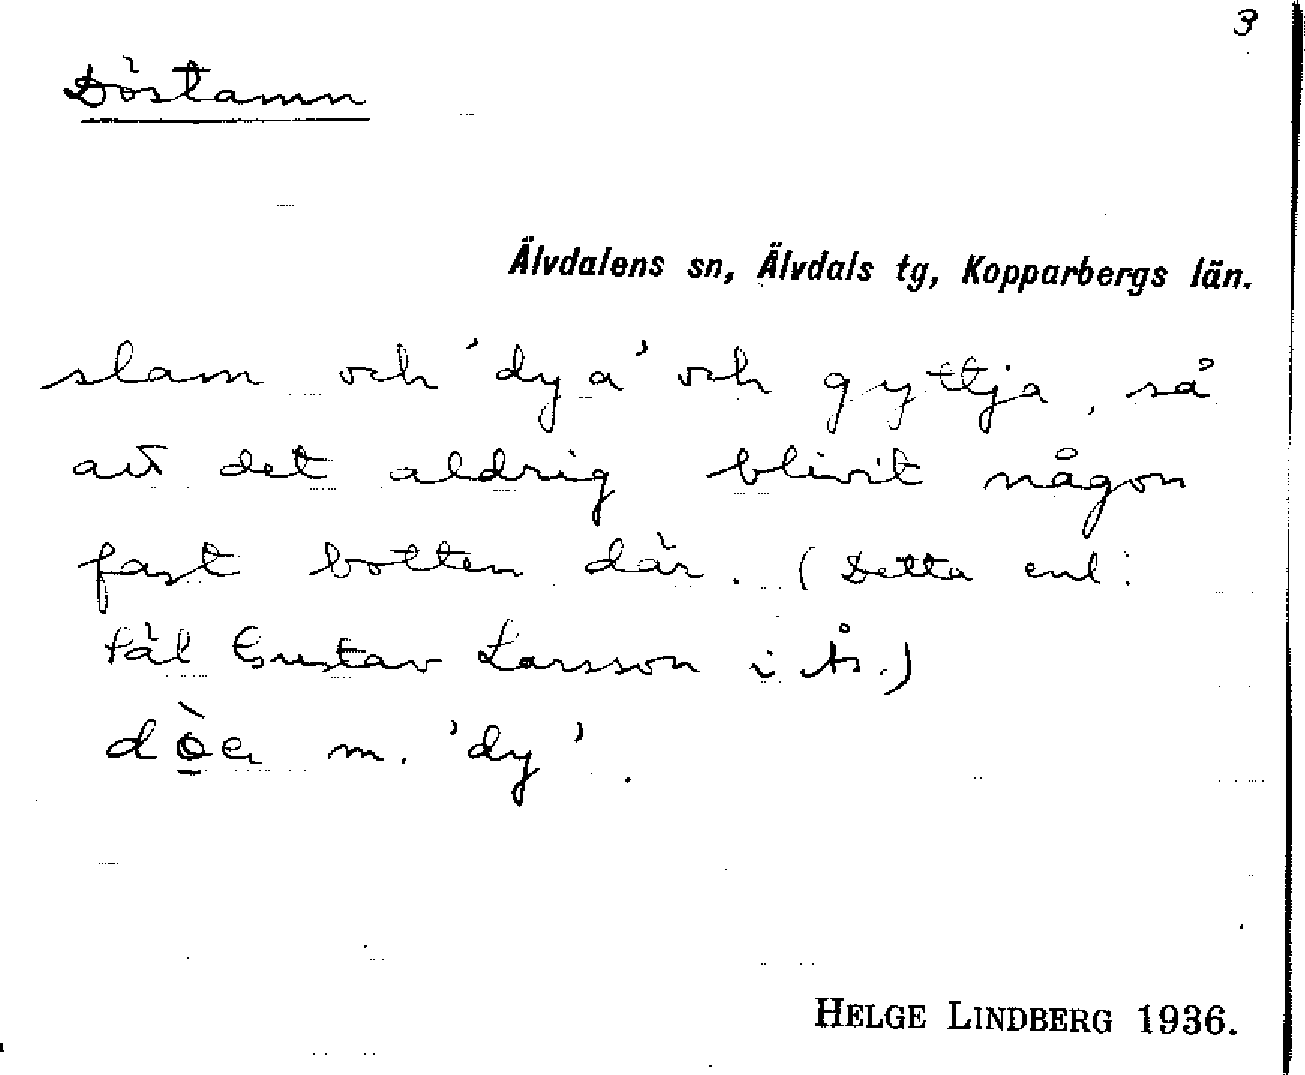 3
Döstamn
Älvdalens sn, Älvdals tg, Kopparbergs län.
slam och 'dya' och gyttja, så
att det aldrig blivit någon
fast botten där. (Detta enl:
Päl Gustav Larsson i Ås.)
dòe m. 'dy'.
HELGE LINDBERG 1936.